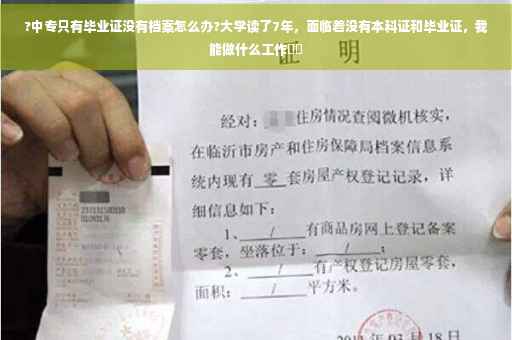 ?中专只有毕业证没有档案怎么办?大学读了7年，面临着没有本科证和毕业证，我
能做什么工作
证 明
经对： 住房情况查阅微机核实，
在临沂市房产和住房保障局档案信息系
统内现有 零 套房屋产权登记记录，详
细信息如下：
1、 / 有商品房网上登记备案
零套，坐落位于： / ；
2、 / 有产权登记房屋零套，
面积： / 平方米。
03月18日